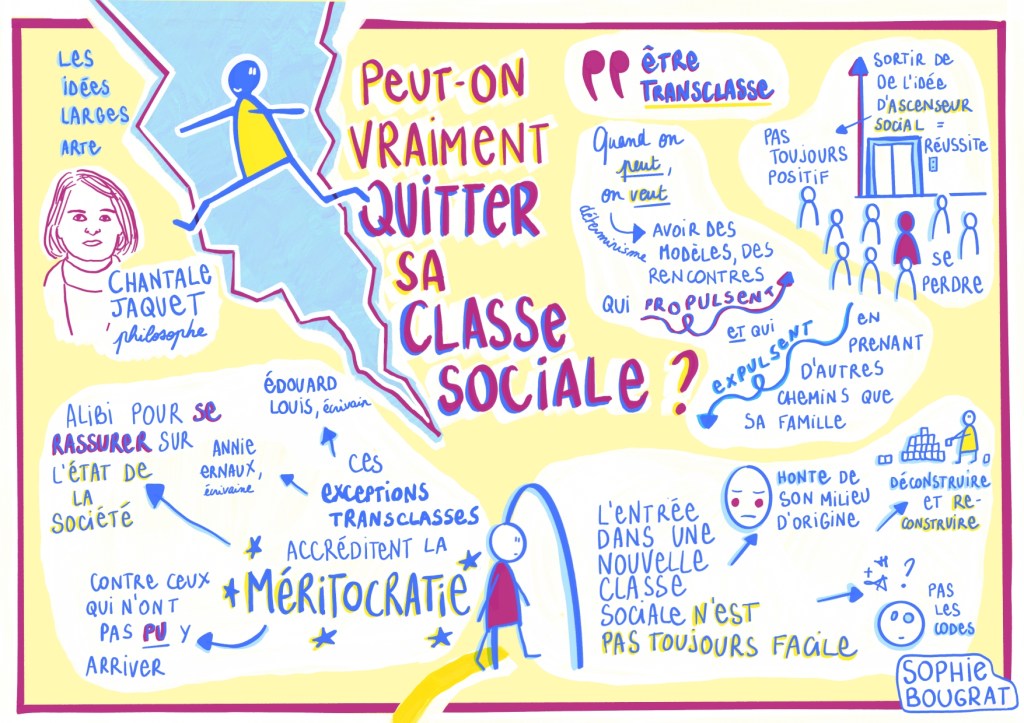 LES
IDÉES
LARGES
ARTE
CHANTALE
JAQUET
philosophe
PEUT-ON
VRAIMENT
QUITTER
SA
CLASSE
SOCIALE ?
ÊTRE
TRANSCLASSE
Quand on
peut,
on veut
déterminisme
AVOIR DES
MODÈLES, DES
RENCONTRES
QUI PROPULSENT
ET QUI
EXPULSENT
EN
PRENANT
D'AUTRES
CHEMINS QUE
SA FAMILLE
SORTIR DE
DE L'IDÉE
D'ASCENSEUR
SOCIAL =
RÉUSSITE
PAS
TOUJOURS
POSITIF
SE
PERDRE
ALIBI POUR SE
RASSURER SUR
L'ÉTAT DE
LA
SOCIÉTÉ
ÉDOUARD
LOUIS, écrivain
ANNIE
ERNAUX,
écrivaine
CES
EXCEPTIONS
TRANSCLASSES
ACCRÉDITENT LA
MÉRITOCRATIE
CONTRE CEUX
QUI N'ONT
PAS PU Y
ARRIVER
L'ENTRÉE
DANS UNE
NOUVELLE
CLASSE
SOCIALE N'EST
PAS TOUJOURS FACILE
HONTE DE
SON MILIEU
D'ORIGINE
DÉCONSTRUIRE
ET RE-
CONSTRUIRE
?
PAS
LES
CODES
SOPHIE
BOUGRAT